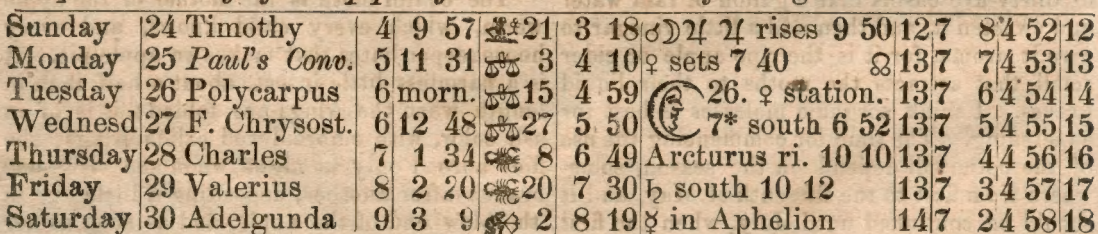 Sunday 24 Timothy 4 9 57 21 3 18 ☌☽♃ ♃ rises 9 50 12 7 8 4 52 12
Monday 25 Paul's Conv. 5 11 31 3 4 10 ♀ sets 7 40 ☊ 13 7 7 4 53 13
Tuesday 26 Polycarpus 6 morn. 15 4 59 26. ♀ station. 13 7 6 4 54 14
Wednesd 27 F. Chrysost. 6 12 48 27 5 50 7* south 6 52 13 7 5 4 55 15
Thursday 28 Charles 7 1 34 8 6 49 Arcturus ri. 10 10 13 7 4 4 56 16
Friday 29 Valerius 8 2 20 20 7 30 ♄ south 10 12 13 7 3 4 57 17
Saturday 30 Adelgunda 9 3 9 2 8 19 ☿ in Aphelion 14 7 2 4 58 18